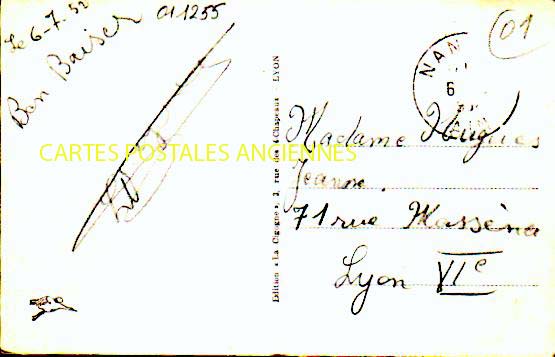 le 6-7. 52
011255
Bon Baiser
01
NAN
6
CARTES POSTALES ANCIENNES
Edition « La Cigogne », 3, rue des 4 Chapeaux - LYON
Madame Hugues
Jeanne.
71 rue Masséna
Lyon VIe